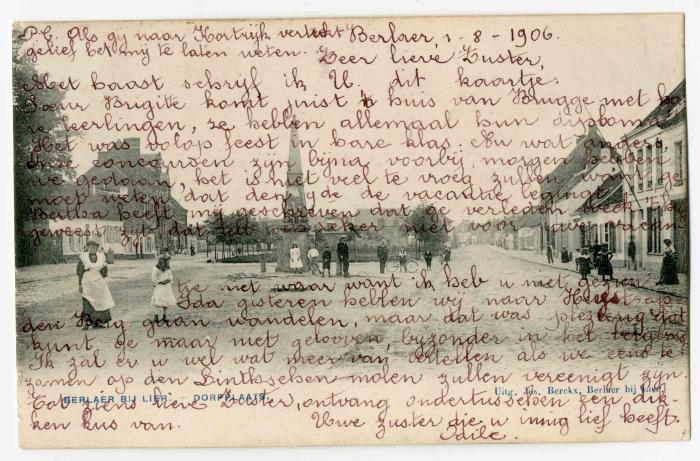 P.C. Als gij naar Kortrijk vertrekt
gelief het mij te laten weten.
Berlaer, 1-8-1906.
Zeer lieve Zuster,
Met haast schrijf ik U dit kaartje.
Zuur Brigitte komt juist t' huis van Brugge met ha
re leerlingen, ze hebben allemaal hun diploma
Het was volop feest in hare klas. Nu wat anders,
onze concoursen zijn bijna voorbij, morgen hebben
we gedaan, het is niet veel te vroeg zullen want ge
moet weten dat den tijd de vacantie begint
Bertha heeft mij geschreven dat ge verleden week
geweest zijt dat zal zeker niet voor uwe
te niet waar want ik heb u niet gezien.
Ida gisteren hebben wij naar Heyst-op
den Berg gaan wandelen, maar dat was
kunt ge maar niet gelooven, bijzonder in het terug
Ik zal er u wel wat meer van vertellen als we eens te
zamen op den Lintschen molen zullen vereenigt zijn.
Tot ziens lieve Zuster, ontvang ondertusschen een dik-
ken kus van. Uwe zuster die u innig lief heeft.
BERLAER BIJ LIER. - DORPPLAATS.
Uitg. Jos. Berckx, Berlaer bij Lier.